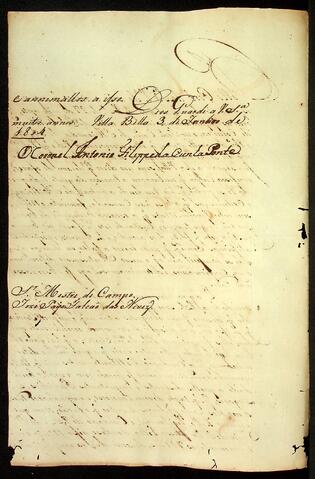 e animallos a isso. Deos Guarde a V. S.ª
muitos annos. Villa Bella 3 de Janeiro de
1804
O Coronel Antonio Filippe da Cunha Ponte
S.r Mestre de Campo
Joze Paes Falcão das Neves